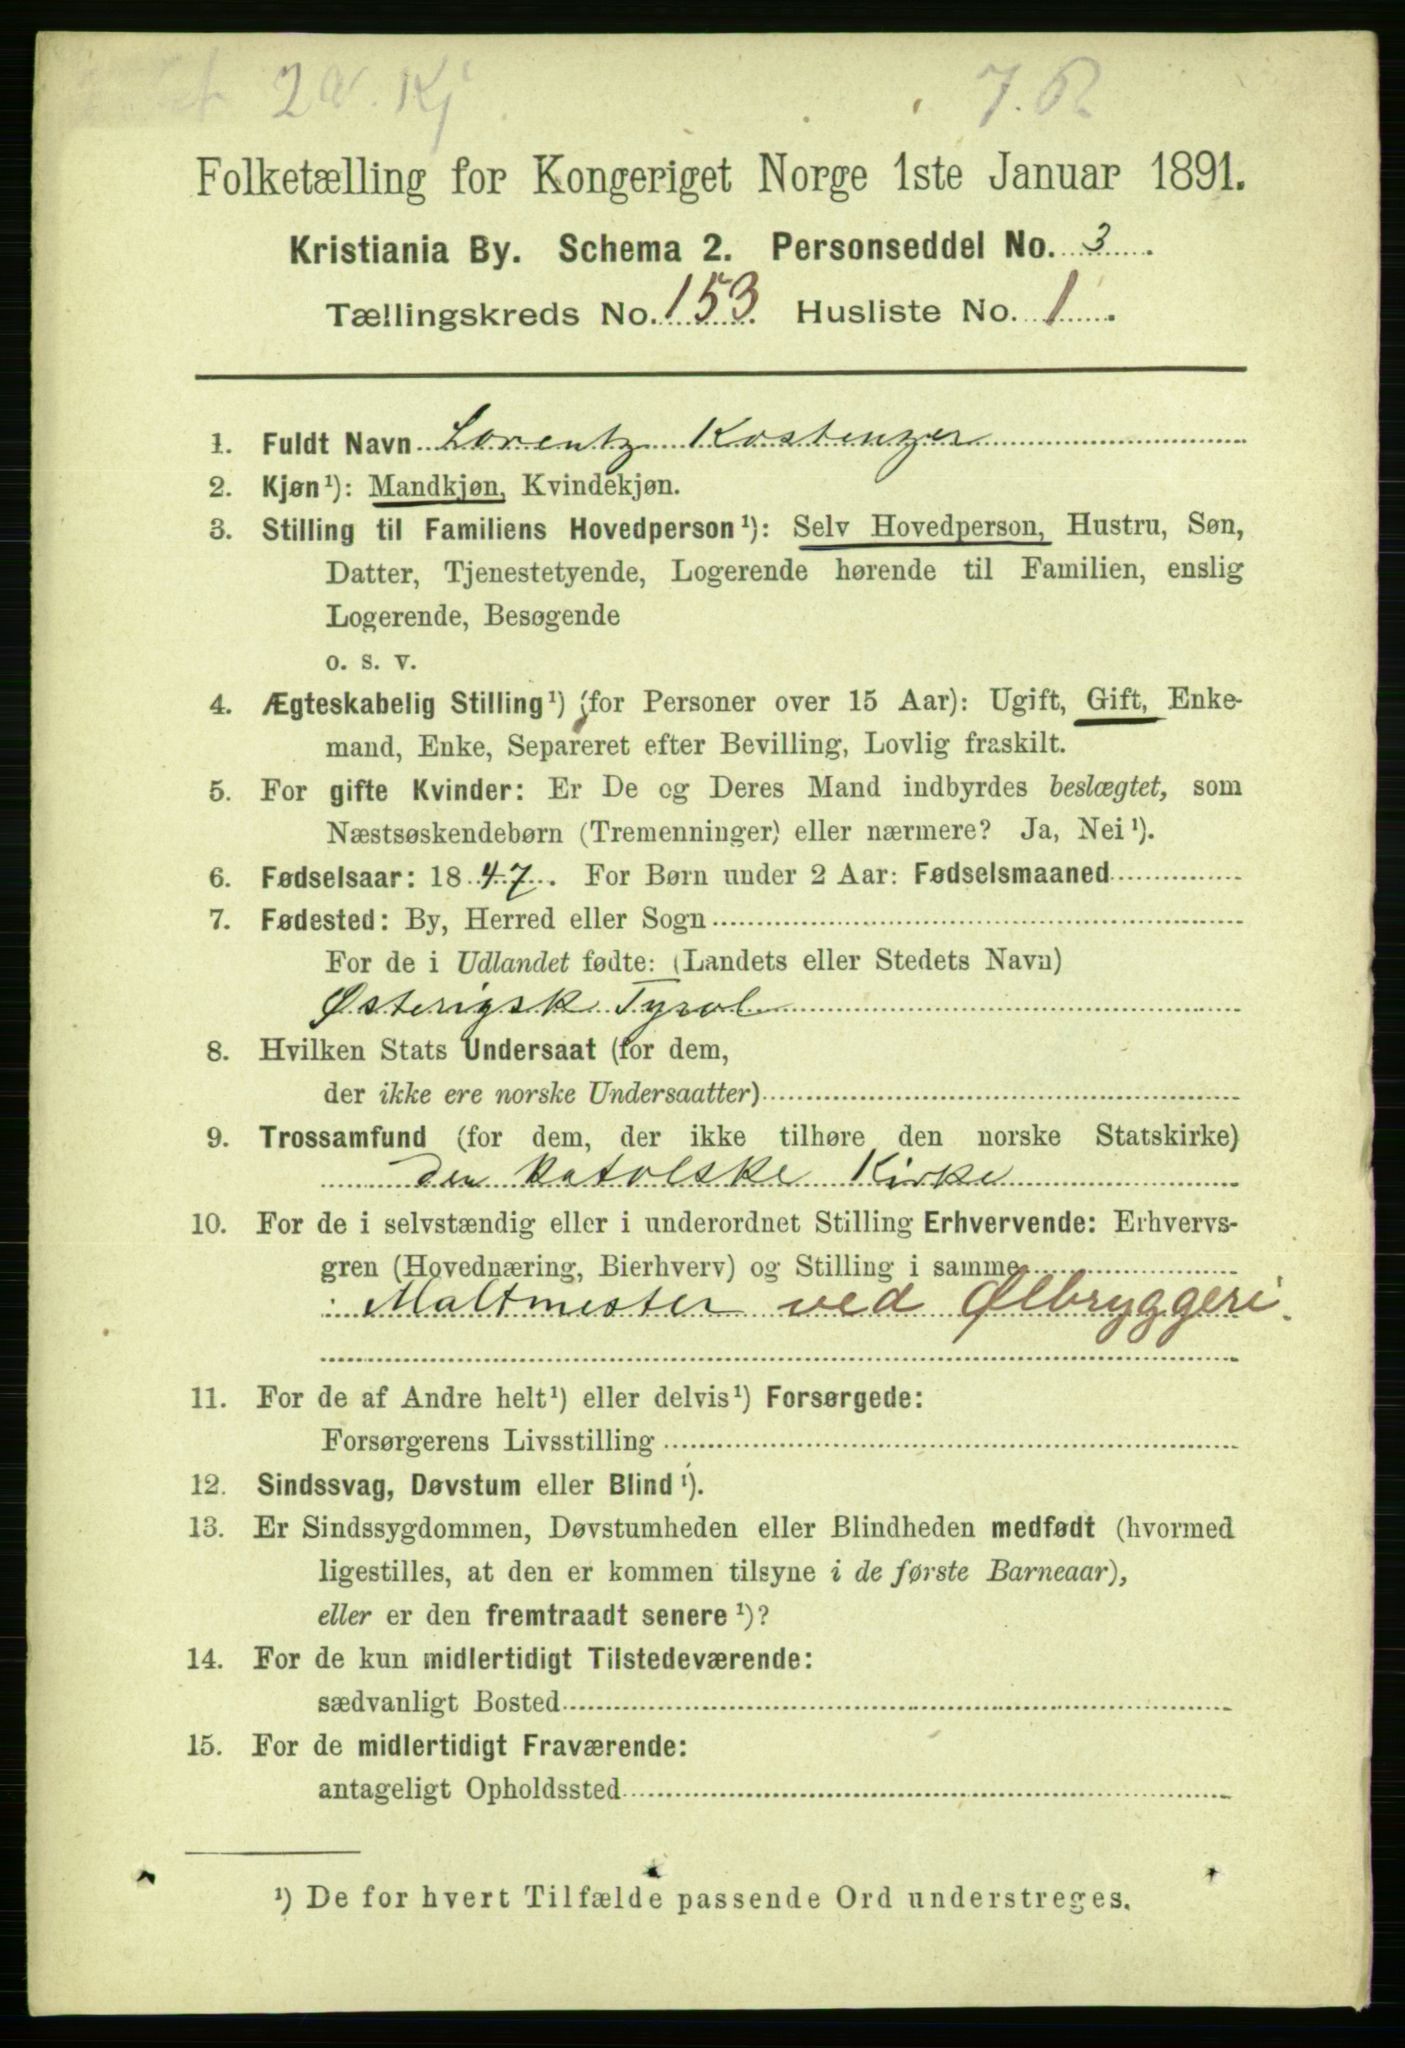 2 a. Kj. 7. R
Folketælling for Kongeriget Norge 1ste Januar 1891.
Kristiania By. Schema 2. Personseddel No. 3
Tællingskreds No. 153 Husliste No. 1
1. Fuldt Navn Lorentz Kostenzer
2. Kjøn¹): Mandkjøn, Kvindekjøn.
3. Stilling til Familiens Hovedperson¹): Selv Hovedperson, Hustru, Søn,
Datter, Tjenestetyende, Logerende hørende til Familien, enslig
Logerende, Besøgende
o. s. v.
4. Ægteskabelig Stilling¹) (for Personer over 15 Aar): Ugift, Gift, Enke-
mand, Enke, Separeret efter Bevilling, Lovlig fraskilt.
5. For gifte Kvinder: Er De og Deres Mand indbyrdes beslægtet, som
Næstsøskendebørn (Tremenninger) eller nærmere? Ja, Nei¹).
6. Fødselsaar: 1847. For Børn under 2 Aar: Fødselsmaaned
7. Fødested: By, Herred eller Sogn
For de i Udlandet fødte: (Landets eller Stedets Navn)
Østerigsk Tyrol
8. Hvilken Stats Undersaat (for dem,
der ikke ere norske Undersaatter)
9. Trossamfund (for dem, der ikke tilhøre den norske Statskirke)
den katolske Kirke
10. For de i selvstændig eller i underordnet Stilling Erhvervende: Erhvervs-
gren (Hovednæring, Bierhverv) og Stilling i samme
Maltmester ved Ølbryggeri.
11. For de af Andre helt¹) eller delvis¹) Forsørgede:
Forsørgerens Livsstilling
12. Sindssvag, Døvstum eller Blind¹).
13. Er Sindssygdommen, Døvstumheden eller Blindheden medfødt (hvormed
ligestilles, at den er kommen tilsyne i de første Barneaar),
eller er den fremtraadt senere¹)?
14. For de kun midlertidigt Tilstedeværende:
sædvanligt Bosted
15. For de midlertidigt Fraværende:
antageligt Opholdssted
¹) De for hvert Tilfælde passende Ord understreges.